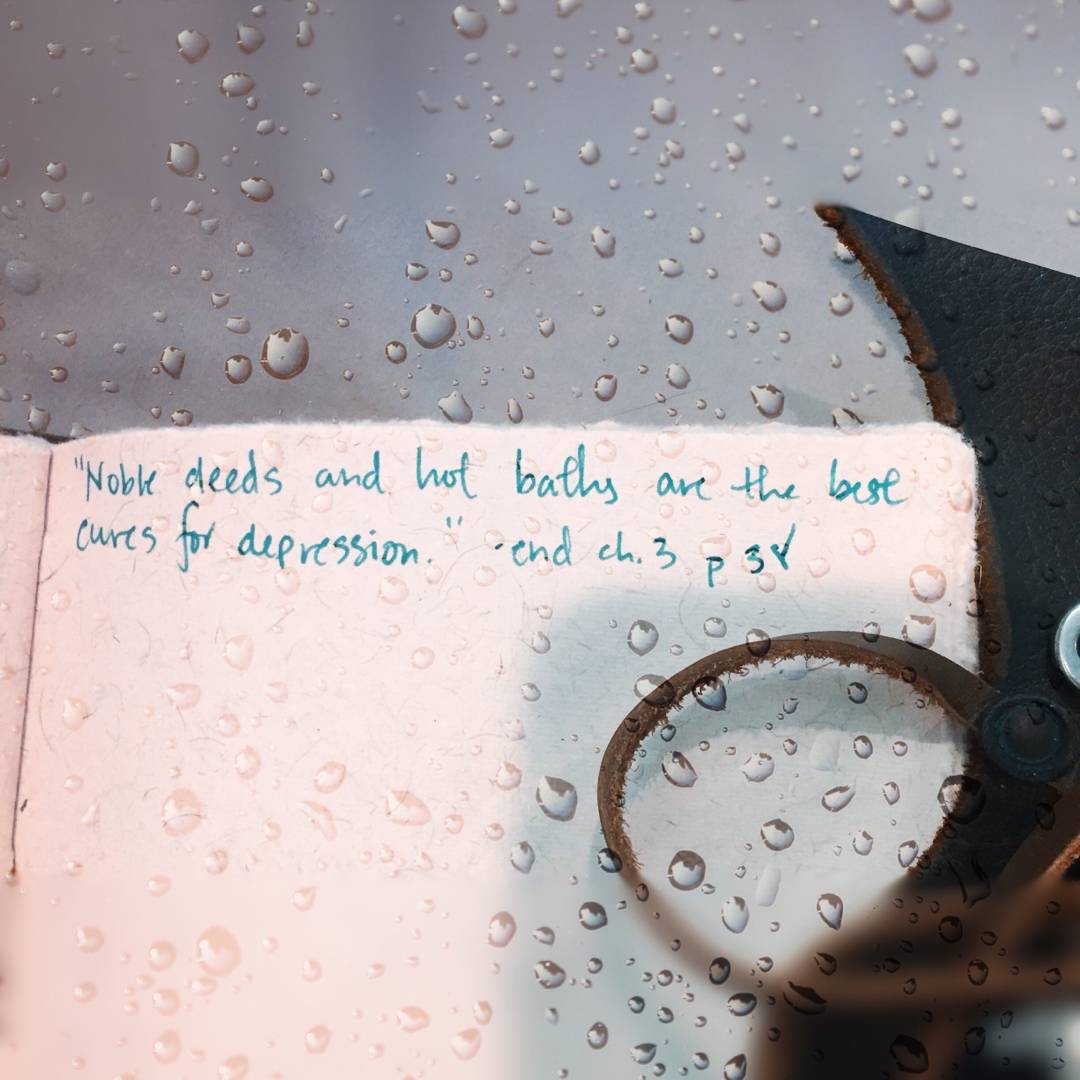 "Noble deeds and hot baths are the best
cures for depression." · end ch. 3 p 38